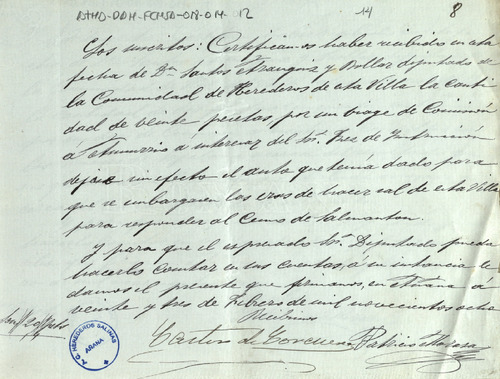 ATHD-DAH-FCMSA-018-014-12
14
8
Los suscritos: Certificamos haber recibido en esta
fecha de Dn Santos Aranguiz y Bollar diputado de
la Comunidad de Herederos de esta Villa la canti
dad de veinte pesetas, por un viage de Comisión
á Amurrio a interesar del Sr. Juez de Instrucción
dejase sin efecto el auto que tenía dado para
que se embarguen las eras de hacer sal de esta Villa
para responder al Censo de Salmanton.
Y para que el expresado Sr. Diputado pueda
hacerlo constar en sus cuentas, á su instancia le
damos el presente que firmamos, en Añana á
veinte y tres de Febrero de mil novecientos ocho
Recibimos
Son 20 pts
Castor de Patricio
T.G. HEREDEROS SALINAS
AÑANA